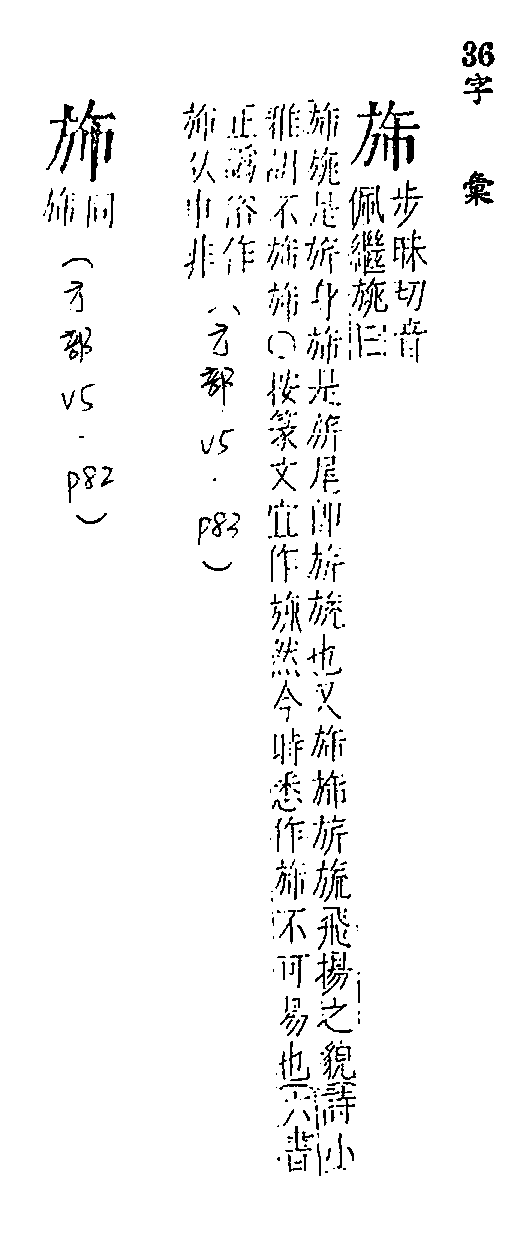 36字 彙
旆
步昧切音
佩繼旐曰
旆旐是旂身旆是旂尾卽旂旒也又旆旆旂旒飛揚之貌詩小
雅胡不旆旆〇按篆文宜作㫆然今時悉作旆不可易也六書
正譌俗作
斾从巾非
(方部
v5
.
p83
)
斾
同
旆
(方部
v5
.
p82
)